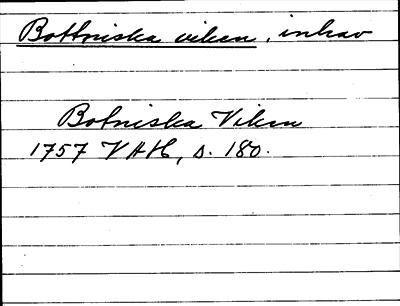 Bottniska viken, inhav
Botniska Viken
1757 VAH, s. 180.